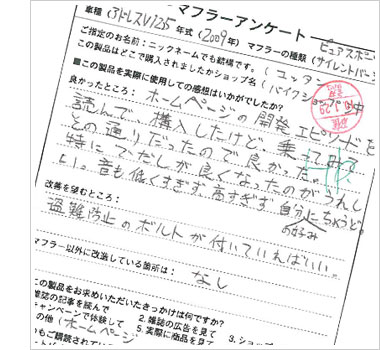 車種(アドレスV125 年式(2009年) マフラーの種類(ピュアスポー
マフラーアンケート
ご指定のお名前:ニックネームでも結構です。(ユッタン
(サイレントバージ
この製品はどこで購入されましたかショップ名(バイク
■この製品を実際に使用しての感想はいかがでしたか?
良かったところ:ホームページの開発エピソードを
読んで、構入したけど、乗ってみて
その通りだったので良かった。
特にでだしが良くなったのがうれし
い。音も低くすぎず高すぎず自分にちょうど。
の好み
改善を望むところ:
盗難防止のボルトが付いていればいい。
マフラー以外に改造している箇所は:なし
この製品をお求めいただいたきっかけは何ですか?
雑誌の記事を読んで 2. 雑誌の広告を見て 3. ショッ
キャンペーンで体験して 5. 実際に商品を見
の他(ホームページ
つもご購読されている